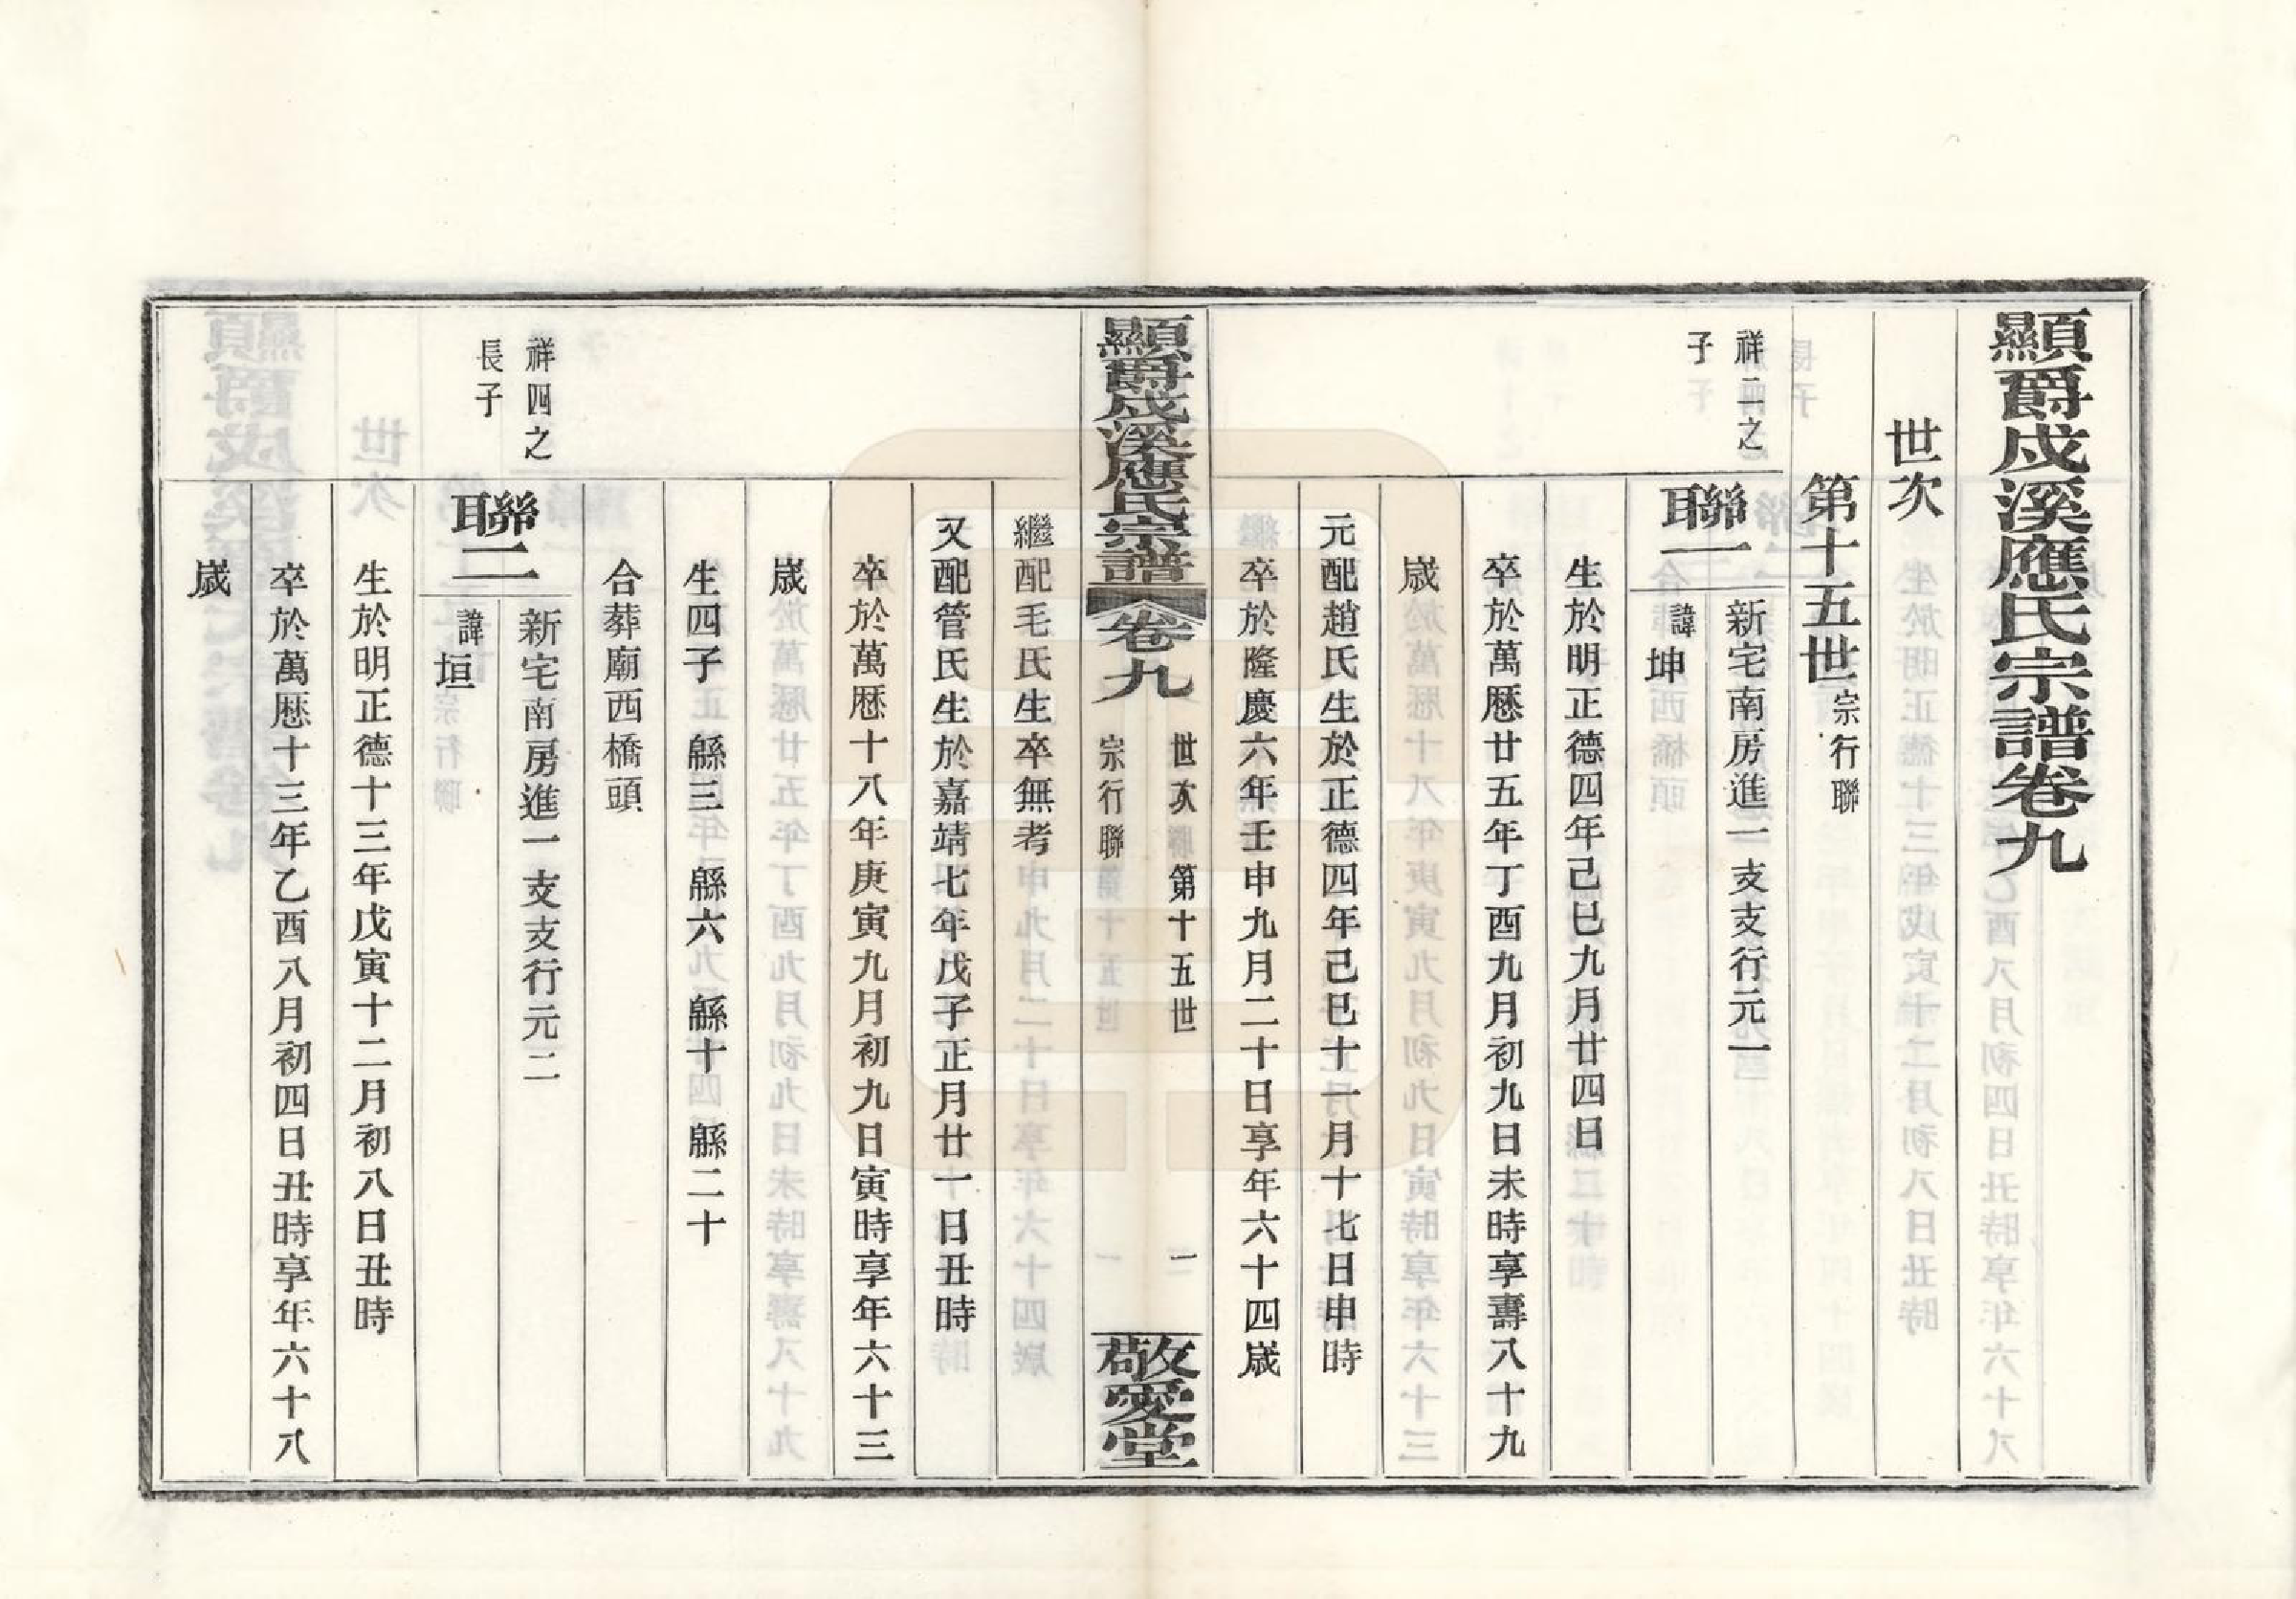 顯爵戍溪應氏宗譜卷九
世次
第十五世宗行聯
祥二之
子
聯一
新宅南房進一支支行元一
諱坤
生於明正德四年己巳九月廿四日
卒於萬厯廿五年丁酉九月初九日未時享壽八十九
歲
元配趙氏生於正德四年己巳十一月十七日申時
卒於隆慶六年壬申九月二十日享年六十四歲
顯爵戍溪應氏宗譜
卷九
世次 第十五世
宗行聯
一
敬愛堂
繼配毛氏生卒無考
又配管氏生於嘉靖七年戊子正月廿一日丑時
卒於萬厯十八年庚寅九月初九日寅時享年六十三
歲
生四子 緜三 緜六 緜十 緜二十
合葬廟西橋頭
祥四之
長子
聯二
新宅南房進一支支行元二
諱垣
生於明正德十三年戊寅十二月初八日丑時
卒於萬厯十三年乙酉八月初四日丑時享年六十八
歲